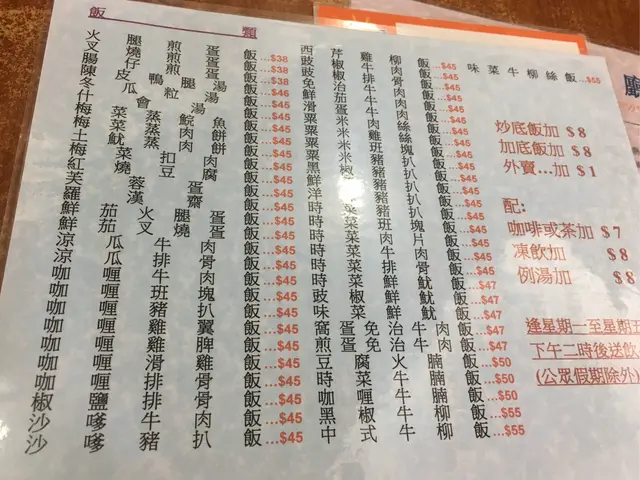 飯類
火腿煎蛋飯...$38
叉燒煎蛋飯...$38
腸仔煎蛋飯...$38
陳皮鴨腿湯飯...$46
冬瓜粒湯飯...$45
什會湯飯...$45
梅菜蒸鯇魚飯...$45
梅菜蒸肉餅飯...$45
土魷蒸肉餅飯...$45
梅菜扣肉飯...$45
紅燒豆腐飯...$45
芙蓉蛋飯...$45
羅漢齋飯...$45
鮮茄叉燒蛋飯...$45
鮮茄火腿蛋飯...$45
涼瓜牛肉飯...$45
涼瓜排骨飯...$45
咖喱牛肉飯...$45
咖喱班塊飯...$45
咖喱豬扒飯...$45
咖喱雞翼飯...$45
咖喱雞髀飯...$45
咖喱滑雞飯...$45
咖喱排骨飯...$45
椒鹽排骨飯...$45
沙嗲牛肉飯...$45
沙嗲豬扒飯...$45
西芹雞柳飯...$45
豉椒牛肉飯...$45
豉椒排骨飯...$45
免治牛肉飯...$45
鮮茄牛肉飯...$45
滑蛋牛肉飯...$45
粟米肉絲飯...$45
粟米雞絲飯...$45
粟米班塊飯...$45
粟米豬扒飯...$45
黑椒豬扒飯...$45
鮮茄豬扒飯...$45
洋蔥豬扒飯...$45
時菜豬扒飯...$45
時菜班塊飯...$45
時菜肉片飯...$45
時菜牛肉飯...$45
時菜排骨飯...$45
時菜鮮魷飯...$47
豉椒鮮魷飯...$47
味菜鮮魷飯...$47
窩蛋免治牛肉飯...$47
煎蛋免治牛肉飯...$47
豆腐火腩飯...$50
時菜牛腩飯...$50
咖喱牛腩飯...$50
黑椒牛柳飯...$55
中式牛柳飯...$55
味菜牛柳絲飯...$55
炒底飯加 $8
加底飯加 $8
外賣...加 $1
配:
咖啡或茶加 $7
凍飲加 $8
例湯加 $8
逢星期一至星期五
下午二時後送飲
(公眾假期除外)